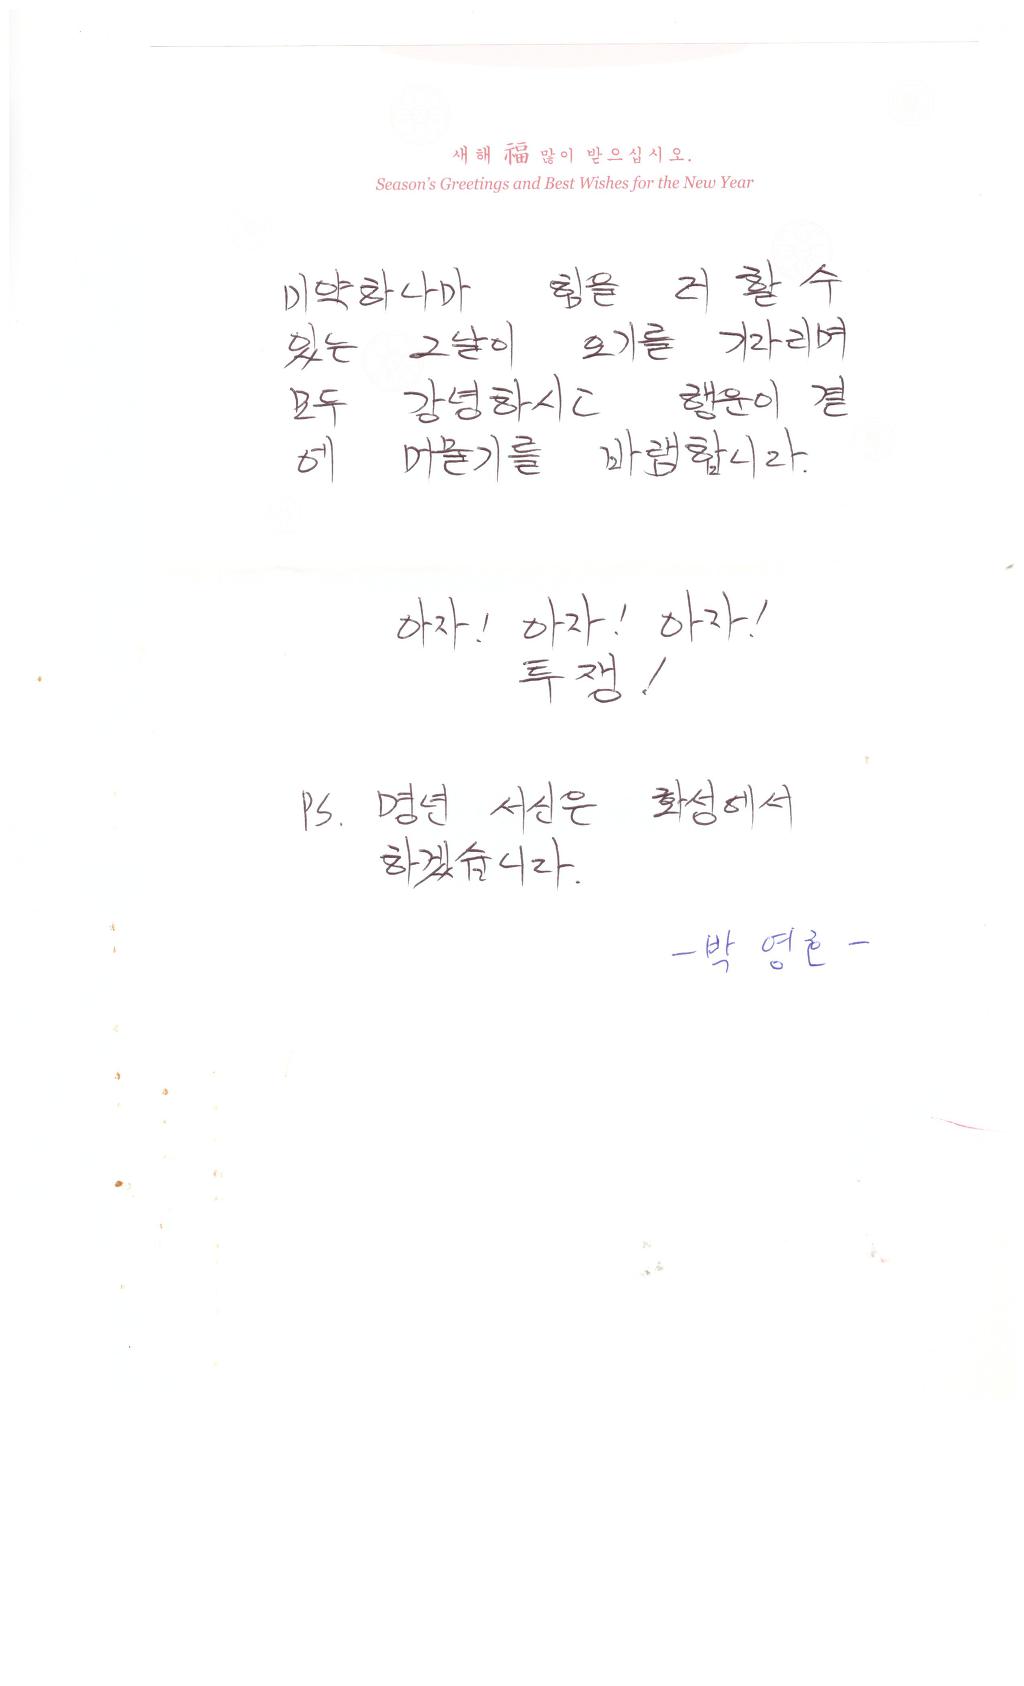 새해 福 많이 받으십시오.
Season's Greetings and Best Wishes for the New Year
미약하나마 힘을 더 할 수
있는 그날이 오기를 기다리며
모두 강녕하시고 행운이 곁
에 머물기를 바램합니다.
아자! 아자! 아자!
투쟁!
PS. 명년 서신은 화성에서
하겠습니다.
-박 영호-